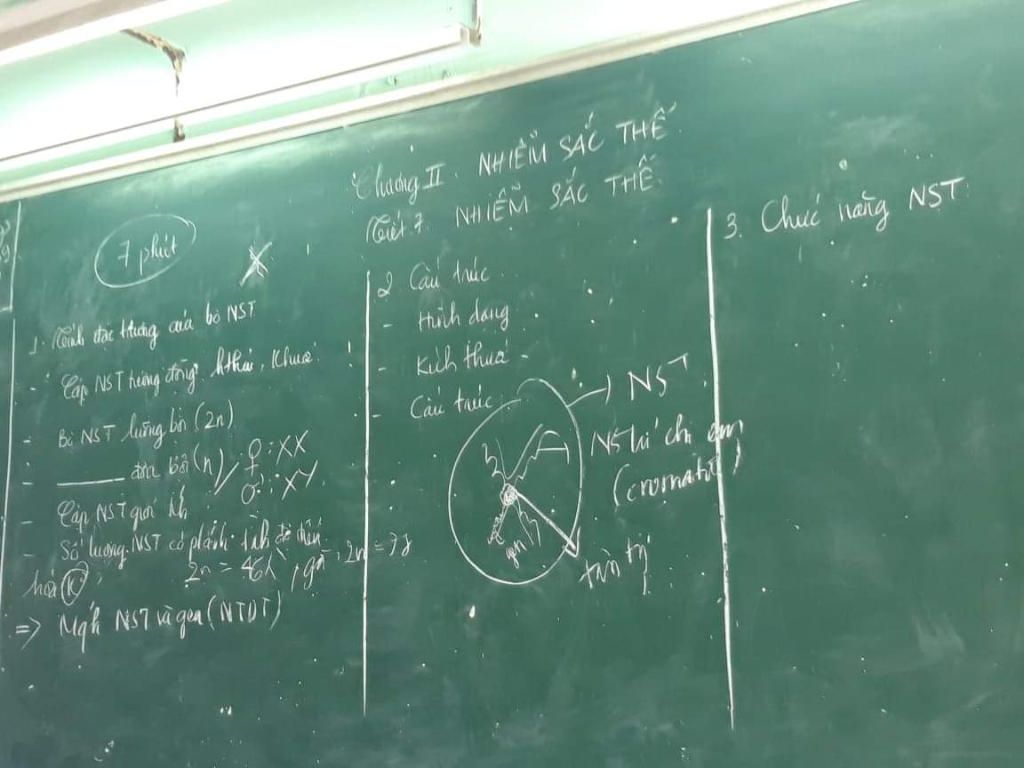 Chương II. NHIỄM SẮC THỂ
Tiết 7 NHIỄM SẮC THỂ
7 phút
1. Tính đặc trưng của bộ NST
- Cặp NST tương đồng: hthái, kthước
- Bộ NST lưỡng bội (2n)
- ——— đơn bội (n)
- Cặp NST giới tính
♀: XX
♂: XY
- Số lượng NST có phải tính để tiến
hoá (K)
2n = 46, gà: 2n = 78
=> Mqh NST và gen (NTDT)
2 Cấu trúc
- Hình dạng
- Kích thước
- Cấu trúc
NST
NS tử chị em
(cromatit)
gen
tâm
3. Chức năng NST